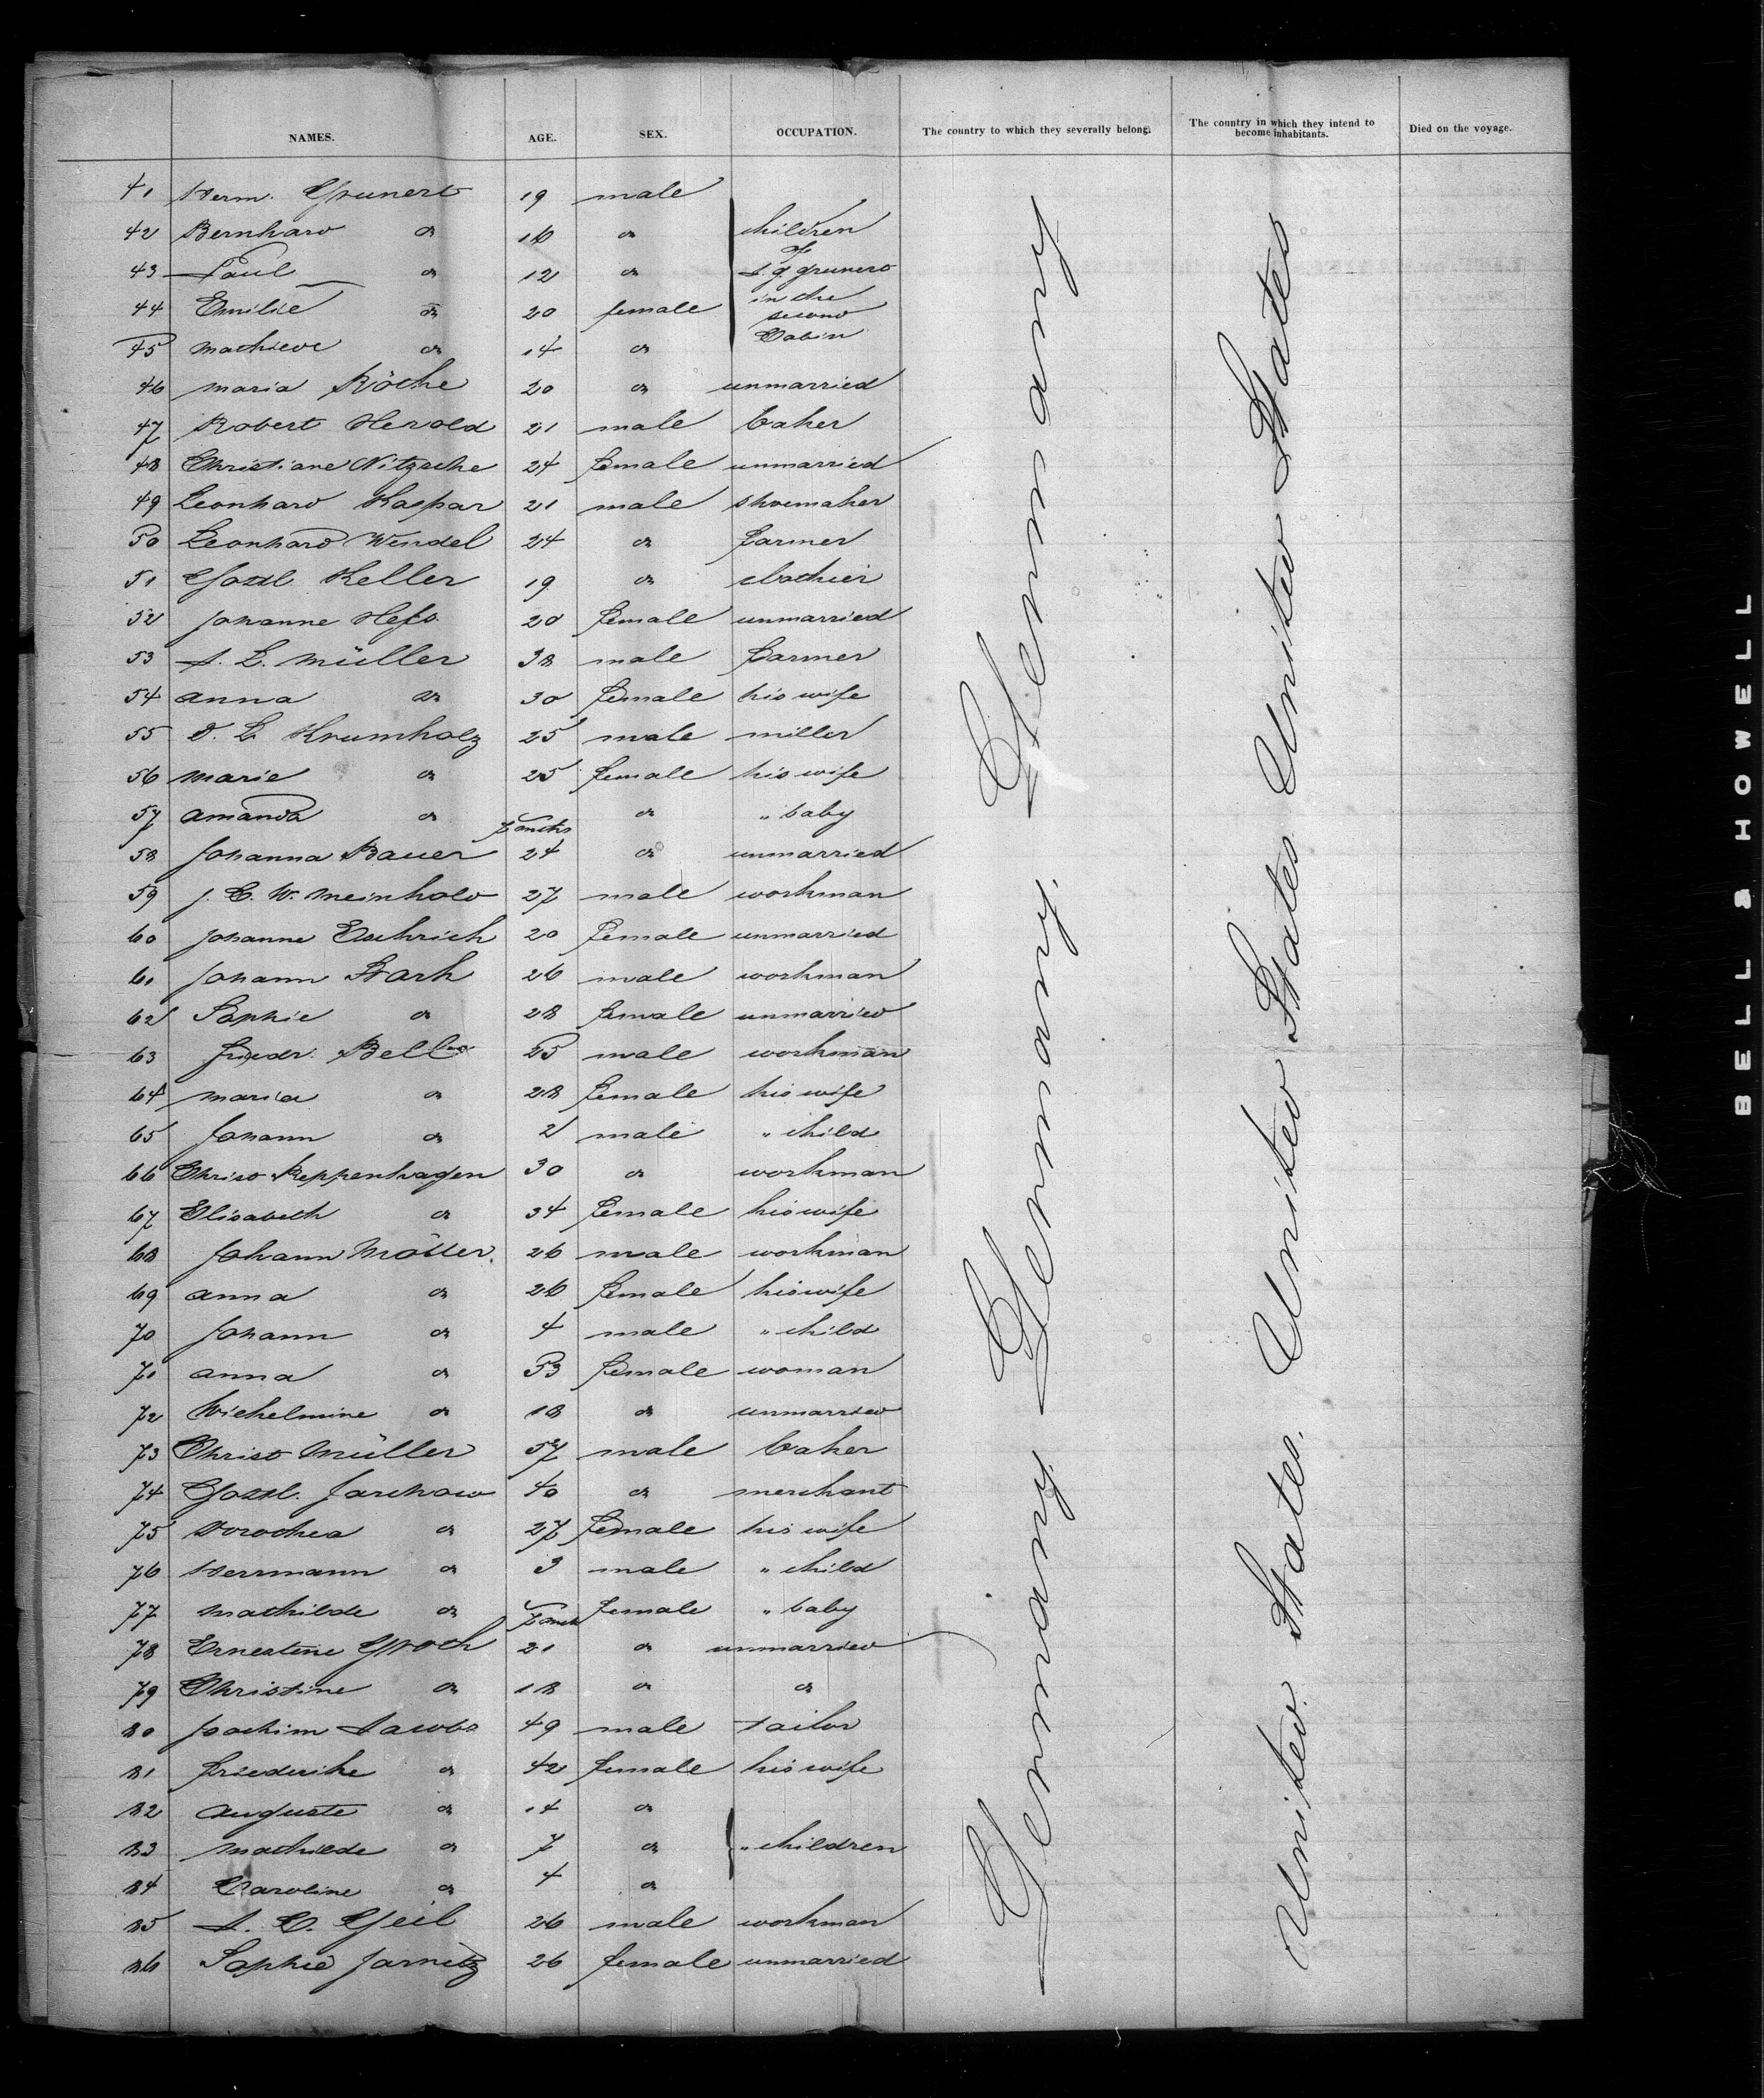 NAMES. AGE. SEX. OCCUPATION. The country to which they severally belong. The country in which they intend to become inhabitants. Died on the voyage.
41 Herm. Grunert 19 male
42 Bernhard do 16 do children
43 Paul do 12 do of J. G. Grunert
44 Emilie do 20 female in the second
45 Mathilde do 14 do Cabin
46 Maria Röthe 20 do unmarried
47 Robert Herold 21 male baker
48 Christiane Nitzsche 24 female unmarried
49 Leonhard Kaspar 21 male shoemaker
50 Leonhard Wendel 24 do farmer
51 Gottl. Keller 19 do clothier
52 Johanne Hefs 20 female unmarried
53 J. L. Müller 38 male farmer
54 Anna do 30 female his wife
55 F. L. Krumholz 25 male miller
56 Marie do 25 female his wife
57 Amanda do 7 mths do " baby
58 Johanna Bauer 24 do unmarried
59 J. C. W. Meinhold 27 male workman
60 Johanne Eschrich 20 female unmarried
61 Johann Stark 26 male workman
62 Sophie do 28 female unmarried
63 Friedr. 25 male workman
64 Maria do 28 female his wife
65 Johann do 2 male " child
66 Christ Reppenhagen 30 do workman
67 Elisabeth do 34 female his wife
68 Johann Möller. 26 male workman
69 Anna do 26 female his wife
70 Johann do 4 male " child
71 Anna do 53 female woman
72 Wilhelmine do 18 do unmarried
73 Christ Müller 57 male baker
74 Gottl. Jarchow 40 do merchant
75 Dorothea do 27 female his wife
76 Herrmann do 3 male " child
77 Mathilde do 7 mth female " baby
78 Ernestine Groth 21 do unmarried
79 Christine do 18 do do
80 Joachim Jacobs 49 male tailor
81 Friederike do 42 female his wife
82 Auguste do 14 do
83 Mathilde do 7 do " children
84 Caroline do 4 do
85 J. C. Geil 26 male workman
86 Sophie Jarnitz 26 female unmarried
Germany Germany. Germany
United States. United States United States
BELL & HOWELL